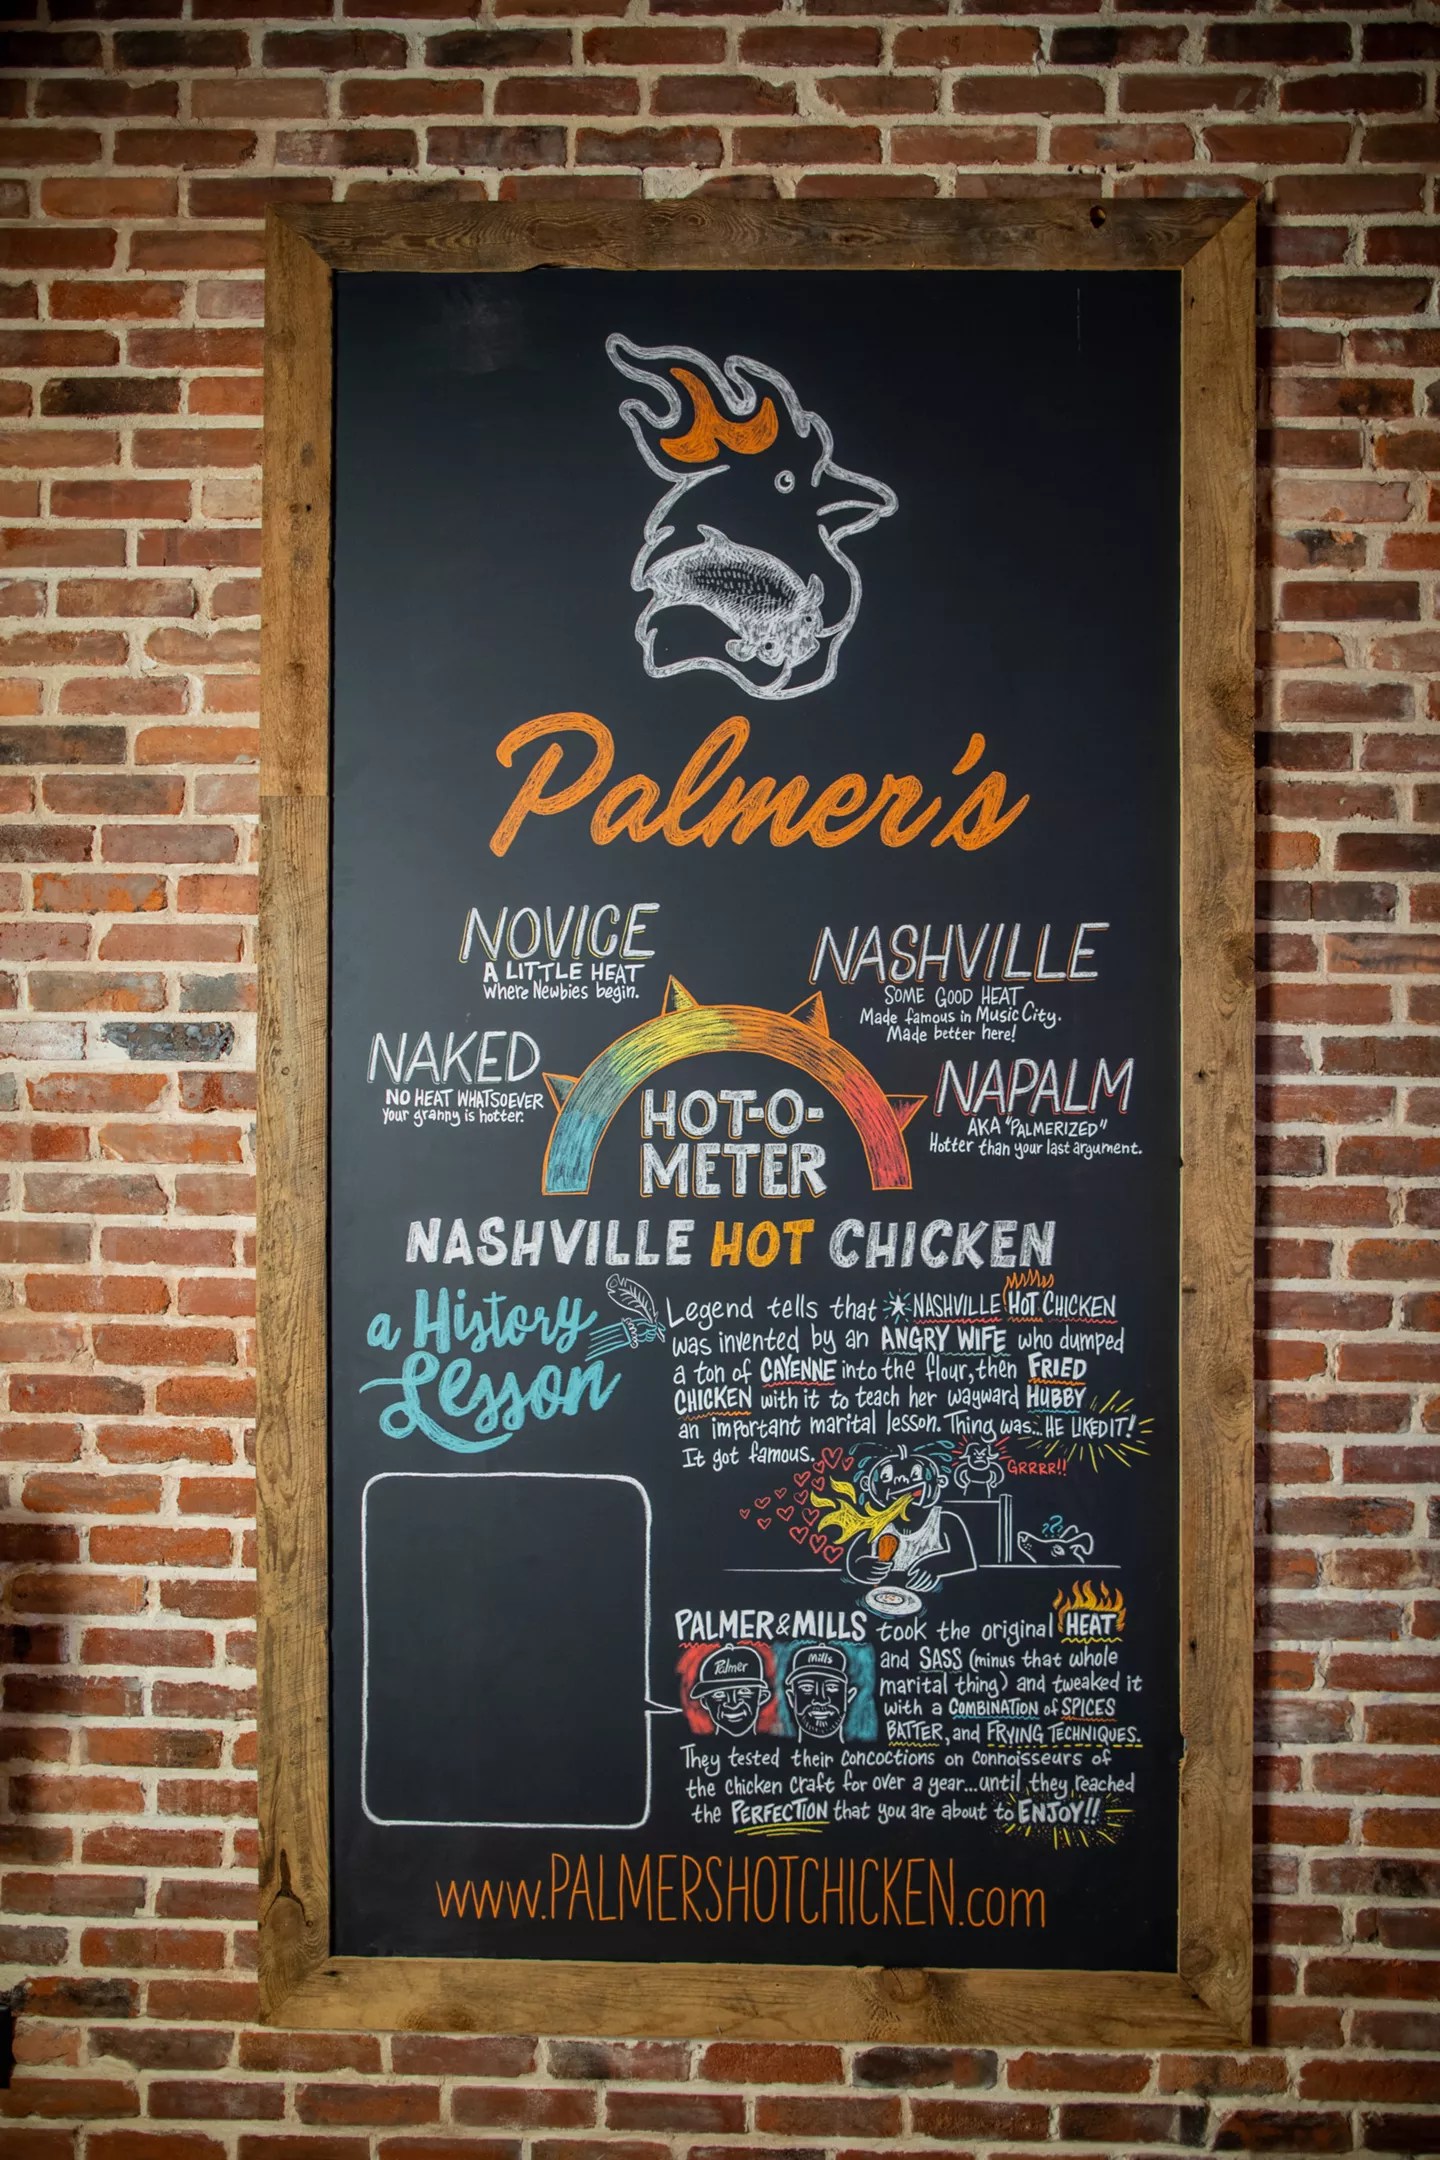 Palmer's
NOVICE
A LITTLE HEAT
Where Newbies begin.
NASHVILLE
SOME GOOD HEAT
Made famous in Music City.
Made better here!
NAKED
NO HEAT WHATSOEVER
your granny is hotter.
NAPALM
AKA "PALMERIZED"
Hotter than your last argument.
HOT-O-
METER
NASHVILLE HOT CHICKEN
a History
Lesson
Legend tells that NASHVILLE HOT CHICKEN
was invented by an ANGRY WIFE who dumped
a ton of CAYENNE into the flour, then FRIED
CHICKEN with it to teach her wayward HUBBY
an important marital lesson. Thing was... HE LIKED IT!
It got famous.
GRRRR!!
??
PALMER & MILLS took the original HEAT
and SASS (minus that whole
marital thing) and tweaked it
with a COMBINATION of SPICES
BATTER, and FRYING TECHNIQUES.
Palmer
Mills
They tested their concoctions on connoisseurs of
the chicken craft for over a year... until they reached
the PERFECTION that you are about to ENJOY!!
www.PALMERSHOTCHICKEN.com